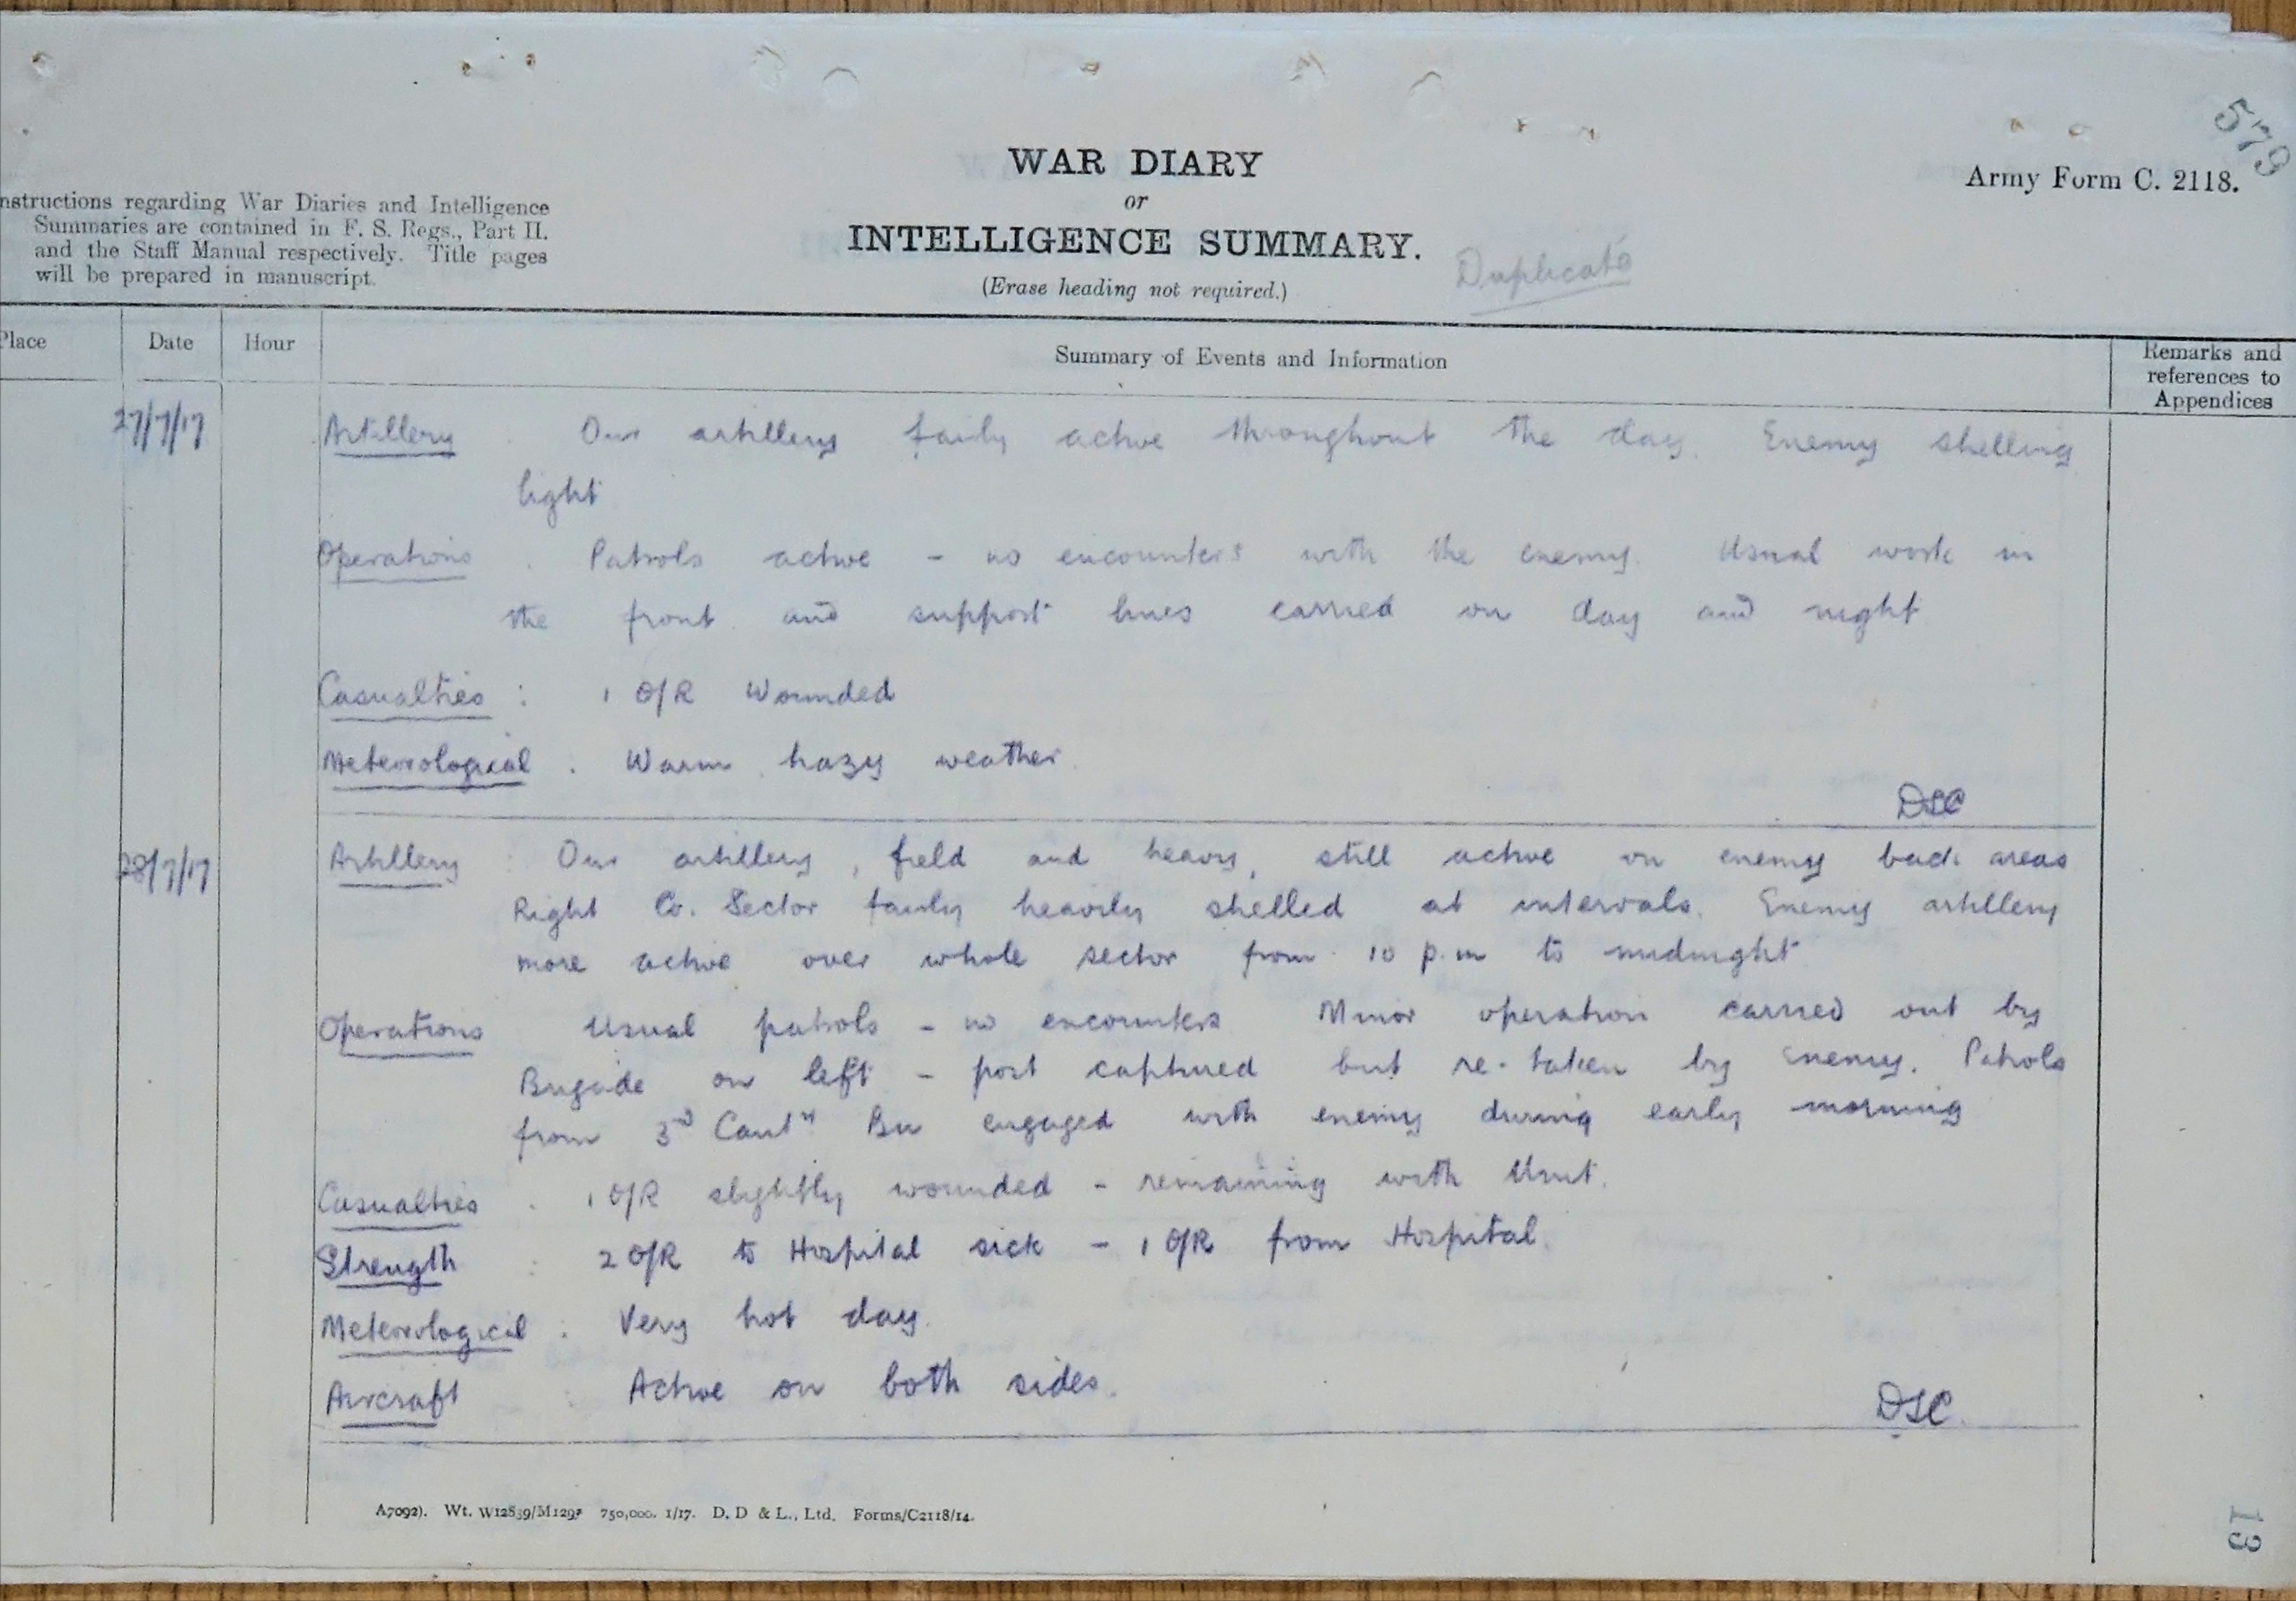 579
WAR DIARY
or
INTELLIGENCE SUMMARY.
(Erase heading not required.)
Duplicate
Army Form C. 2118.
nstructions regarding War Diaries and Intelligence
Summaries are contained in F. S. Regs., Part II.
and the Staff Manual respectively. Title pages
will be prepared in manuscript.
Place Date Hour Summary of Events and Information Remarks and
references to
Appendices
27/7/17 Artillery . Our artillery fairly active throughout the day. Enemy shelling
light
Operations . Patrols active - no encounters with the enemy. Usual work in
the front and support lines carried on day and night
Casualties : 1 O/R Wounded
Meteorological . Warm hazy weather.
DSC
28/7/17 Artillery : Our artillery, field and heavy, still active on enemy back areas
Right Co. Sector fairly heavily shelled at intervals. Enemy artillery
more active over whole sector from 10 p.m to midnight
Operations Usual patrols - no encounters Minor operation carried out by
Brigade on left - post captured but re-taken by Enemy. Patrols
from 3rd Cant'y Bn engaged with enemy during early morning
Casualties . 1 O/R slightly wounded - remaining with Unit.
Strength : 2 O/R to Hospital sick - 1 O/R from Hospital.
Meteorological : Very hot day.
Aircraft : Active on both sides.
DSC.
A7092). Wt. W12839/M1293 750,000. 1/17. D. D & L., Ltd. Forms/C2118/14.
13